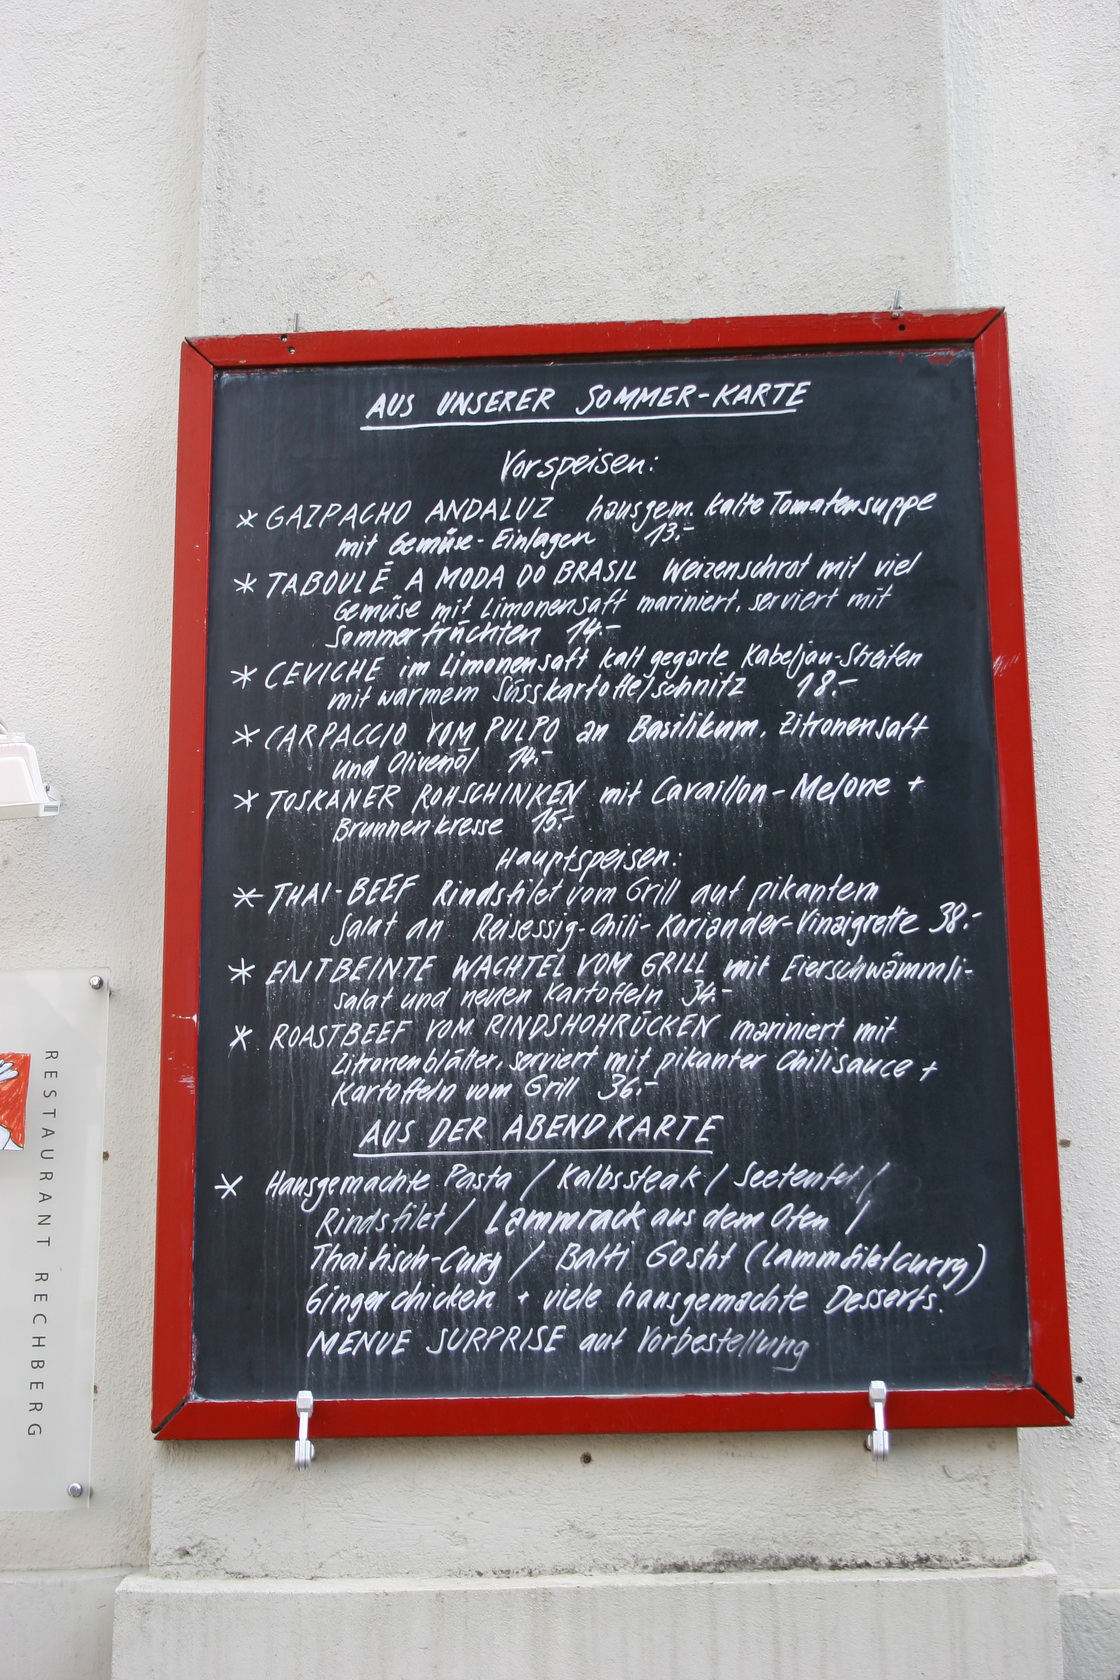 AUS UNSERER SOMMER-KARTE
Vorspeisen:
* GAZPACHO ANDALUZ hausgem. kalte Tomatensuppe
mit Gemüse-Einlagen 13.-
* TABOULÉ A MODA DO BRASIL Weizenschrot mit viel
Gemüse mit Limonensaft mariniert, serviert mit
Sommerfrüchten 14.-
* CEVICHE im Limonensaft kalt gegarte Kabeljau-Streifen
mit warmem Süsskartoffelschnitz 18.-
* CARPACCIO VOM PULPO an Basilikum, Zitronensaft
und Olivenöl 14.-
* TOSKANER ROHSCHINKEN mit Cavaillon-Melone +
Brunnenkresse 15.-
Hauptspeisen:
* THAI-BEEF Rindsfilet vom Grill auf pikantem
Salat an Reisessig-Chili-Koriander-Vinaigrette 38.-
* ENTBEINTE WACHTEL VOM GRILL mit Eierschwämmli-
salat und neuen Kartoffeln 34.-
* ROASTBEEF VOM RINDSHOHRÜCKEN mariniert mit
Zitronenblätter, serviert mit pikanter Chilisauce +
Kartoffeln vom Grill 36.-
AUS DER ABENDKARTE
* Hausgemachte Pasta / Kalbssteak / Seeteufel /
Rindsfilet / Lammrack aus dem Ofen /
Thai fisch-Curry / Balti Gosht (Lammfiletcurry)
Gingerchicken + viele hausgemachte Desserts.
MENUE SURPRISE auf Vorbestellung
RESTAURANT RECHBERG